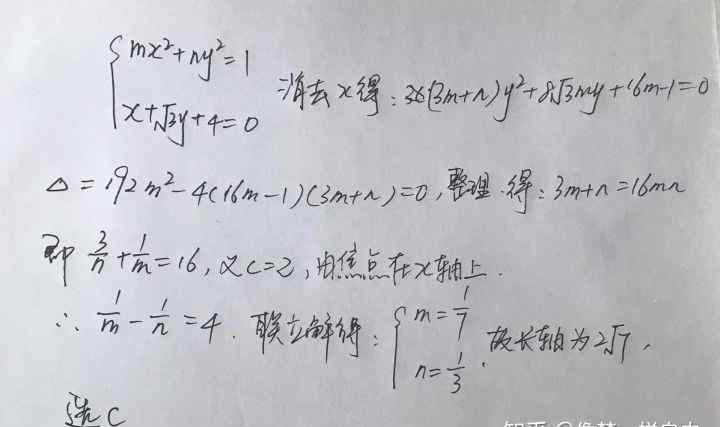 { mx²+ny²=1
x+√3y+4=0 消去x得: 36(3m+n)y²+8√3my+16m-1=0
△=192m²-4(16m-1)(3m+n)=0, 整理得: 3m+n=16mn
即 3/n+1/m=16, 又c=2, 由焦点在x轴上.
∴ 1/m-1/n=4. 联立解得: { m=1/7
n=1/3. 故长轴为2√7.
选C